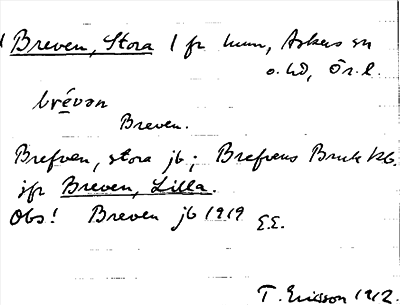 Breven, Stora / fr hmn, Askers sn
o. hd, Ör. l.
brévən
Breven.
Brefven, stora jb; Brefvens Bruk kb.
jfr Breven, Lilla.
Obs! Breven jb 1919 E.E.
T. Ericsson 1912.